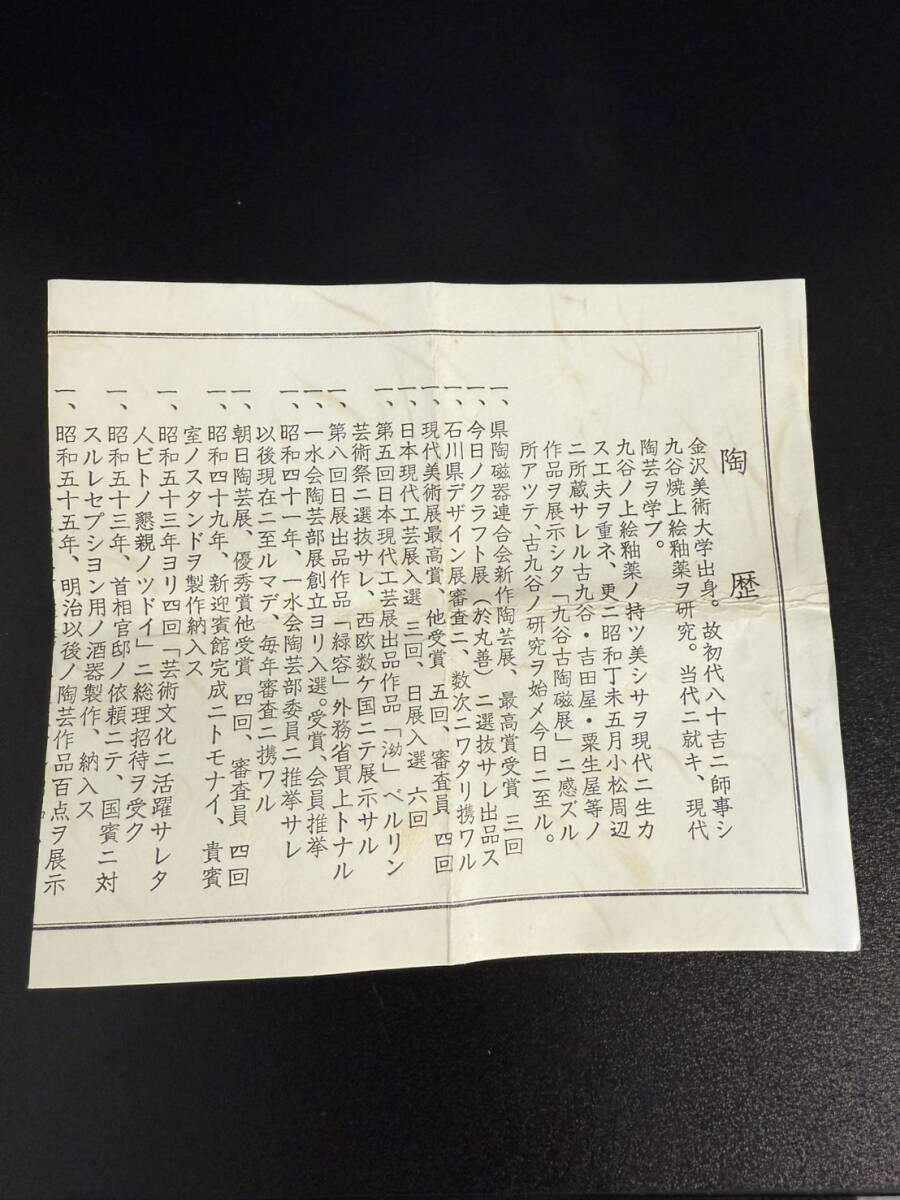 陶歴
金沢美術大学出身。故初代八十吉ニ師事シ
九谷焼上絵釉薬ヲ研究。当代ニ就キ、現代
陶芸ヲ学ブ。
九谷ノ上絵釉薬ノ持ツ美シサヲ現代ニ生カ
ス工夫ヲ重ネ、更ニ昭和丁未五月小松周辺
ニ所蔵サレル古九谷・吉田屋・粟生屋等ノ
作品ヲ展示シタ「九谷古陶磁展」ニ感ズル
所アツテ、古九谷ノ研究ヲ始メ今日ニ至ル。
一、県陶磁器連合会新作陶芸展、最高賞受賞 三回
一、今日ノクラフト展(於丸善)ニ選抜サレ出品ス
一、石川県デザイン展審査ニ、数次ニワタリ携ワル
一、現代美術展最高賞、他受賞 五回、審査員 四回
一、日本現代工芸展入選 三回、日展入選 六回
一、第五回日本現代工芸展出品作品「泑」ベルリン
芸術祭ニ選抜サレ、西欧数ケ国ニテ展示サル
一、第八回日展出品作品「緑容」外務省買上トナル
一、一水会陶芸部展創立ヨリ入選。受賞、会員推挙
一、昭和四十一年、一水会陶芸部委員ニ推挙サレ
以後現在ニ至ルマデ、毎年審査ニ携ワル
一、朝日陶芸展、優秀賞他受賞 四回、審査員 四回
一、昭和四十九年、新迎賓館完成ニトモナイ、貴賓
室ノスタンドヲ製作納入ス
一、昭和五十三年ヨリ四回「芸術文化ニ活躍サレタ
人ビトノ懇親ノツドイ」ニ総理招待ヲ受ク
一、昭和五十三年、首相官邸ノ依頼ニテ、国賓ニ対
スルレセプシヨン用ノ酒器製作、納入ス
一、昭和五十五年、明治以後ノ陶芸作品百点ヲ展示